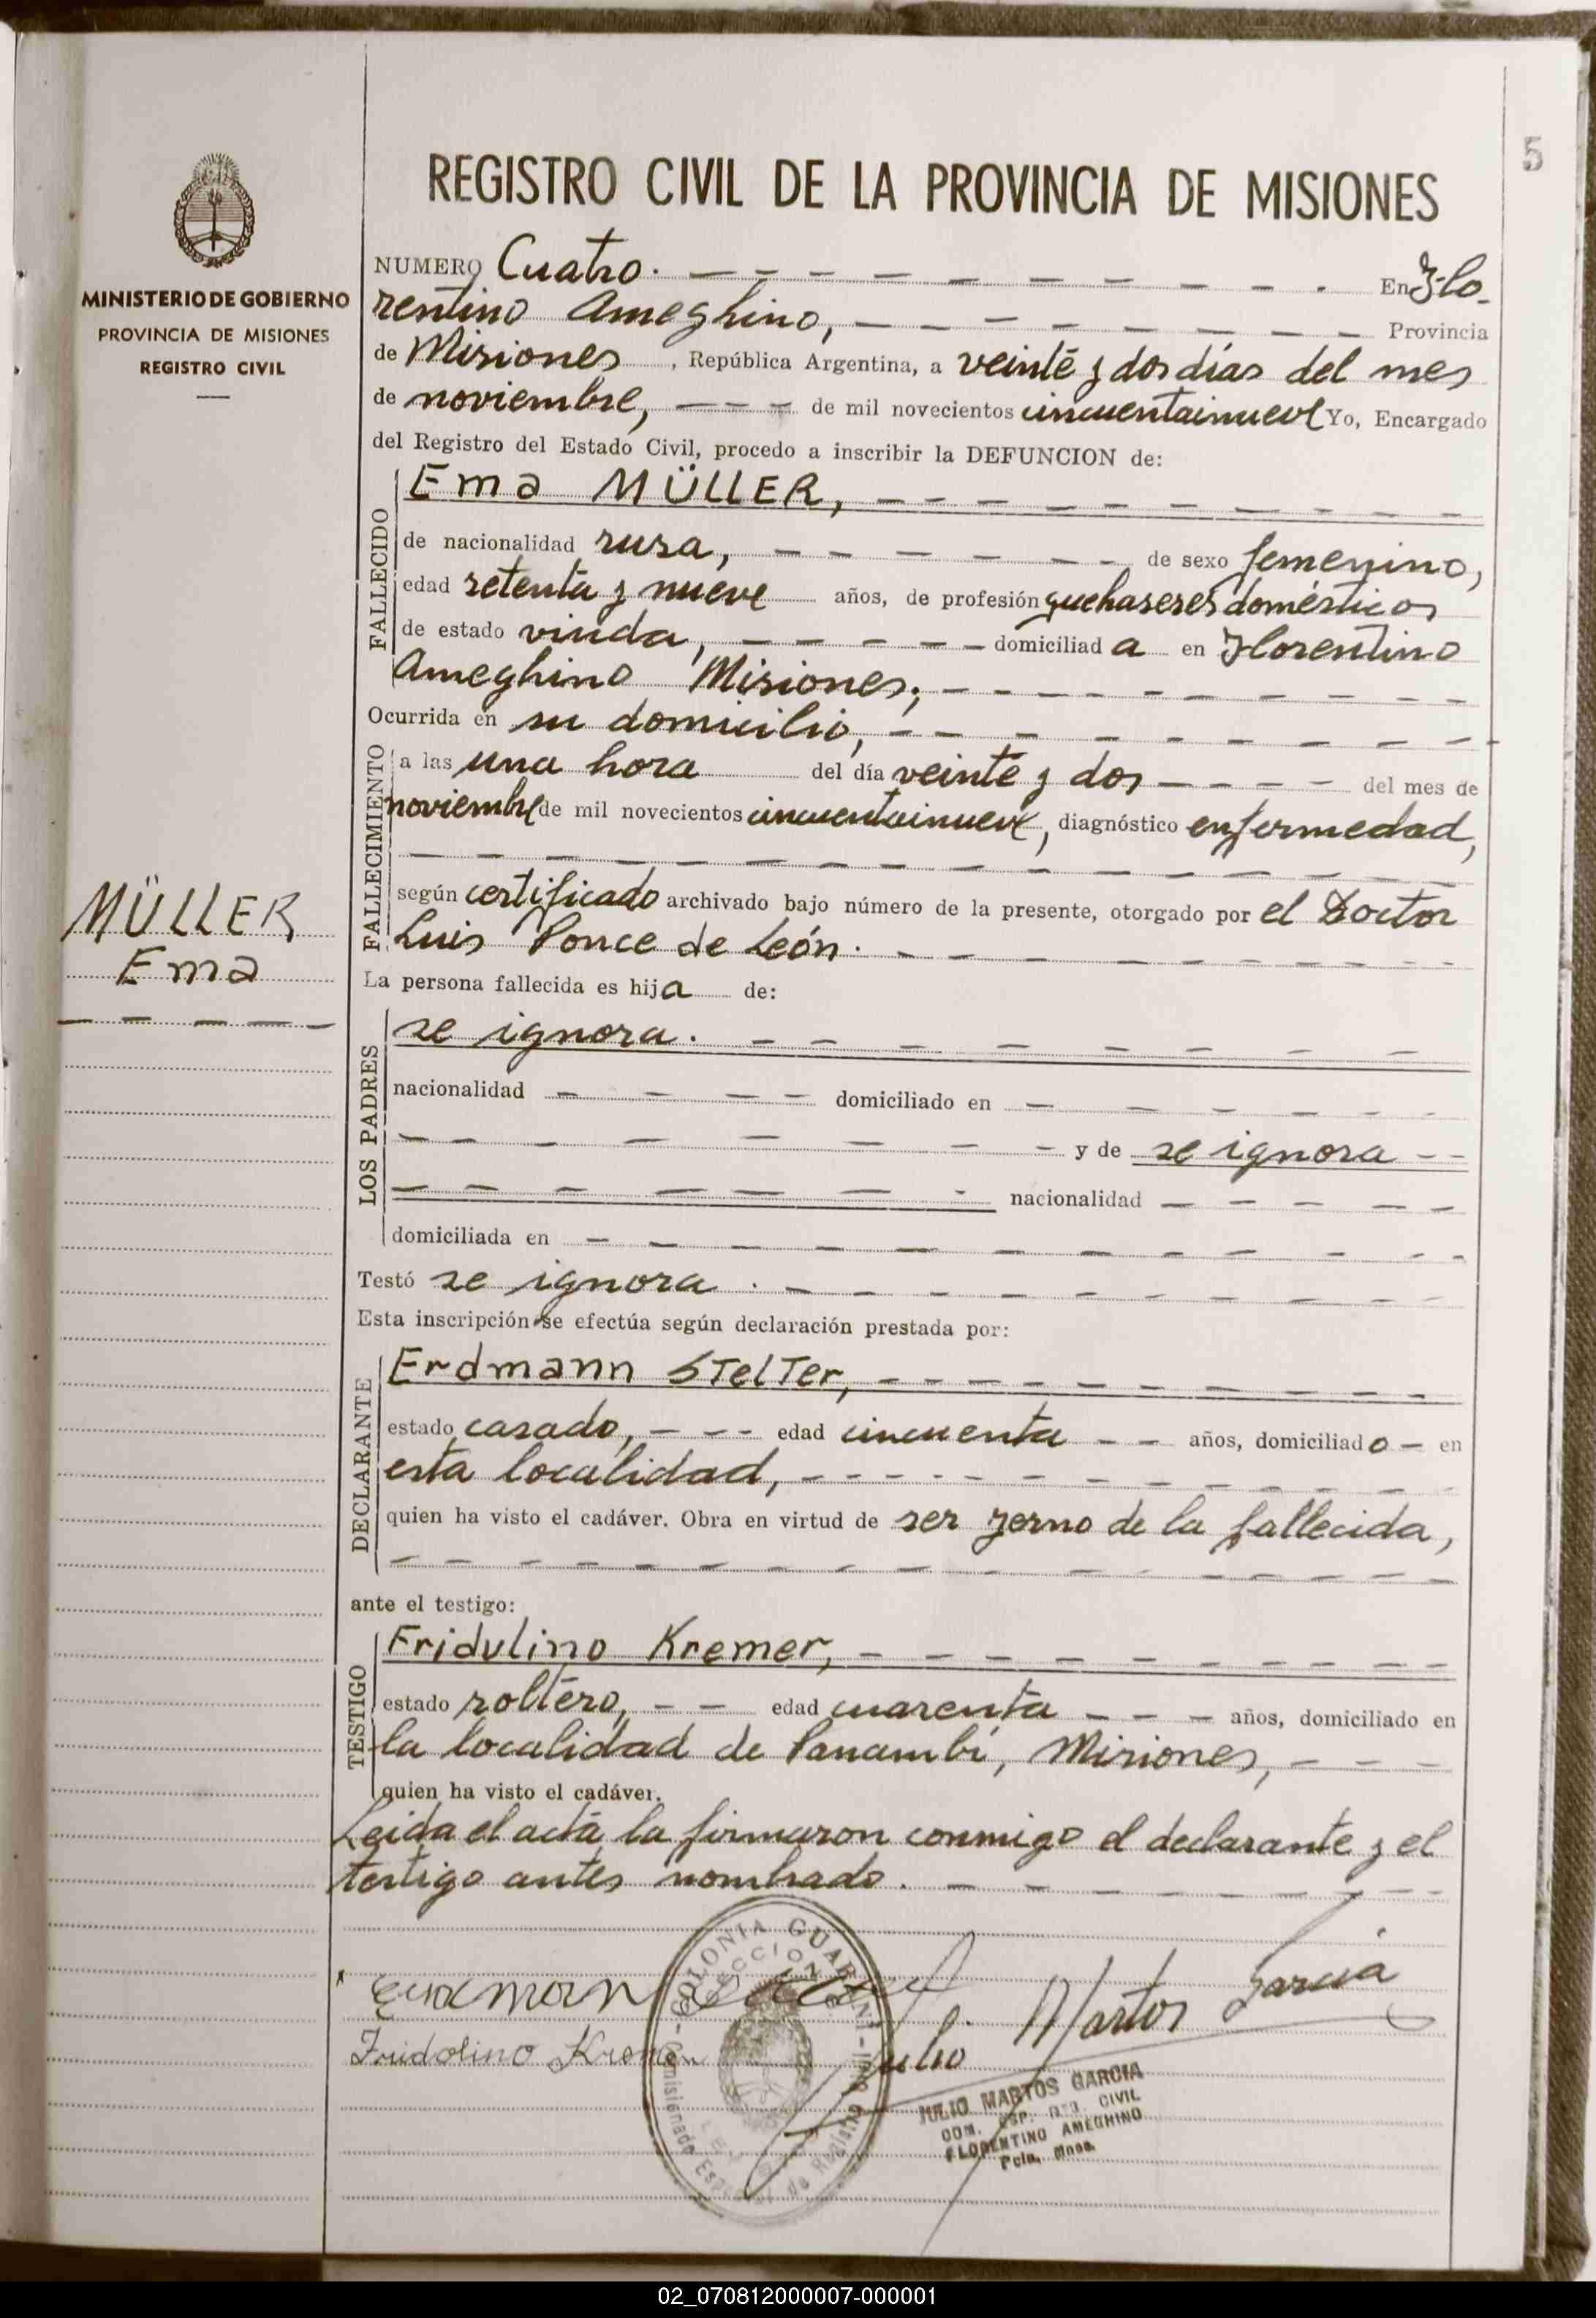 5
REGISTRO CIVIL DE LA PROVINCIA DE MISIONES
MINISTERIO DE GOBIERNO
PROVINCIA DE MISIONES
REGISTRO CIVIL
NUMERO Cuatro. En Flo-
rentino Ameghino, Provincia
de Misiones, República Argentina, a veinte y dos días del mes
de noviembre, de mil novecientos cincuentainueve Yo, Encargado
del Registro del Estado Civil, procedo a inscribir la DEFUNCION de:
FALLECIDO
Ema MÜLLER,
de nacionalidad rusa, de sexo femenino,
edad setenta y nueve años, de profesión quehaseres domésticos
de estado viuda, domiciliad a en Florentino
Ameghino Misiones;
Ocurrida en su domicilio,
FALLECIMIENTO
a las una hora del día veinte y dos del mes de
noviembre de mil novecientos cincuentainueve, diagnóstico enfermedad,
según certificado archivado bajo número de la presente, otorgado por el Doctor
Luis Ponce de León.
MÜLLER
Ema
La persona fallecida es hija de:
LOS PADRES
se ignora.
nacionalidad domiciliado en
y de se ignora
nacionalidad
domiciliada en
Testó se ignora.
Esta inscripción se efectúa según declaración prestada por:
DECLARANTE
Erdmann STelTer,
estado casado, edad cincuenta años, domiciliado en
esta localidad,
quien ha visto el cadáver. Obra en virtud de ser yerno de la fallecida,
ante el testigo:
TESTIGO
Fridulino Kremer,
estado soltero, edad cuarenta años, domiciliado en
la localidad de Panambí, Misiones,
quien ha visto el cadáver.
Leida el acta la firmaron conmigo el declarante y el
testigo antes nombrado.
COLONIA GUARANI
Julio Martos Garcia
Fridolino Kremer
JULIO MARTOS GARCIA
COM. ESP. REG. CIVIL
FLORENTINO AMEGHINO
Pcia. Mnes.
02_070812000007-000001